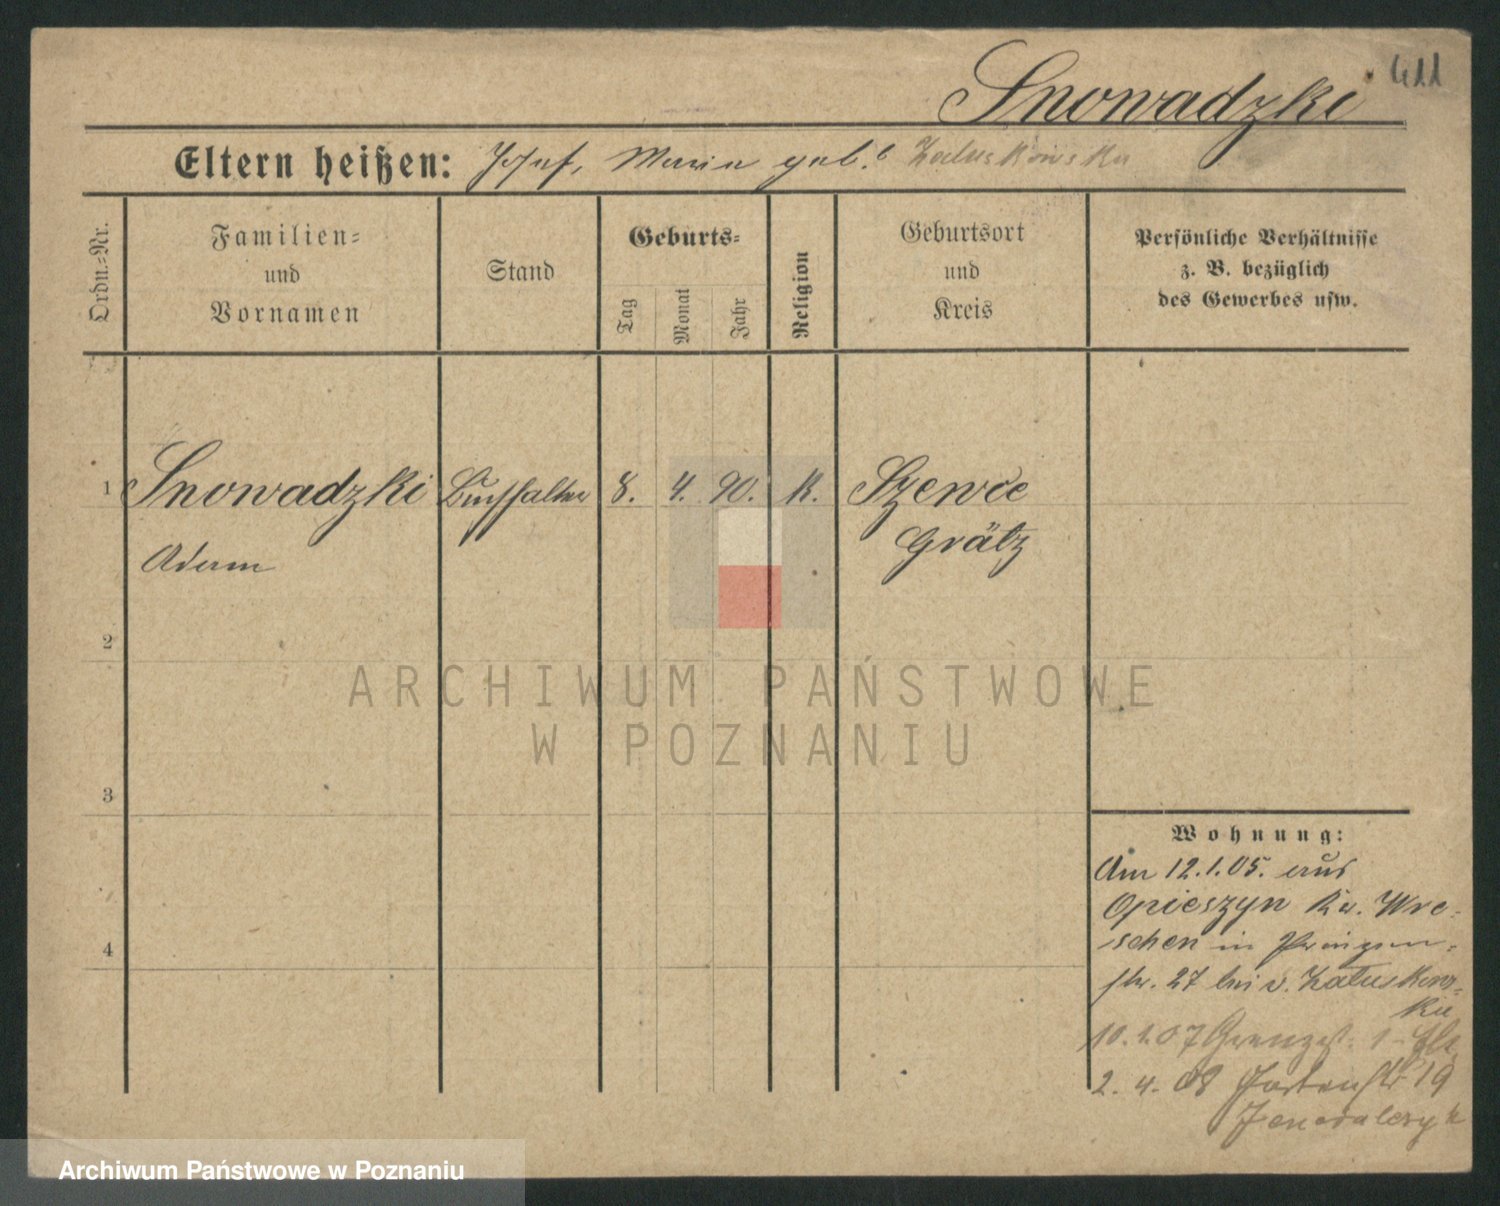 411
Snowadzki
Eltern heißen: Josef, Maria geb. Zaluskowska
Ordn.-Nr.
Familien-
und
Vornamen
Stand
Geburts-
Tag
Monat
Jahr
Religion
Geburtsort
und
Kreis
Persönliche Verhältnisse
z. B. bezüglich
des Gewerbes usw.
1 Snowadzki Buchhalter 8. 4. 90. K. Szewce
Adam Grätz
2
3
4
ARCHIWUM PAŃSTWOWE
W POZNANIU
Wohnung:
Am 12.1.05. aus
Opieszyn Kr. Wre-
schen in
str. 27 bei v. Zaluskows-
ka
10.1.07 Grenzst. 1
2.4.08 Gartenstr 19
Archiwum Państwowe w Poznaniu